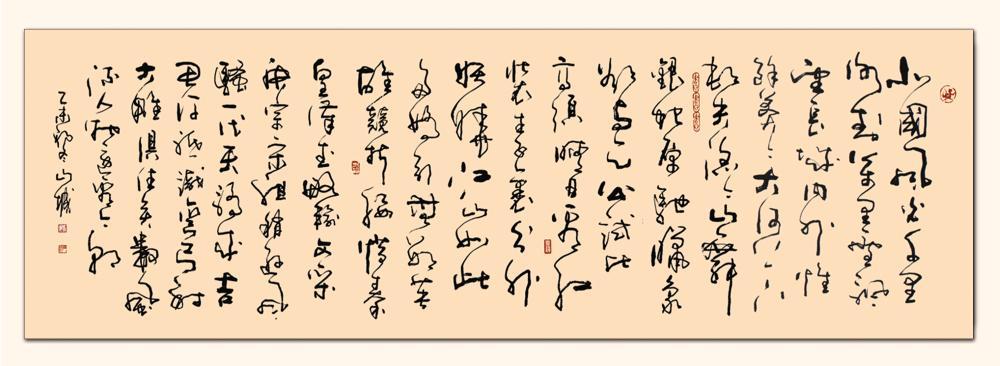 北國風光千里
冰封萬里雪飄
望長城內外惟
餘莽莽大河上下
頓失滔滔山舞
銀蛇原馳蠟象
欲與天公試比
高須晴日看紅
裝素裹分外
妖嬈江山如此
多嬌引無數英
雄競折腰惜秦
皇漢武略輸文采
唐宗宋祖稍遜風
騷一代天驕成吉
思汗祗識彎弓射
大雕俱往矣數風
流人物還看今朝